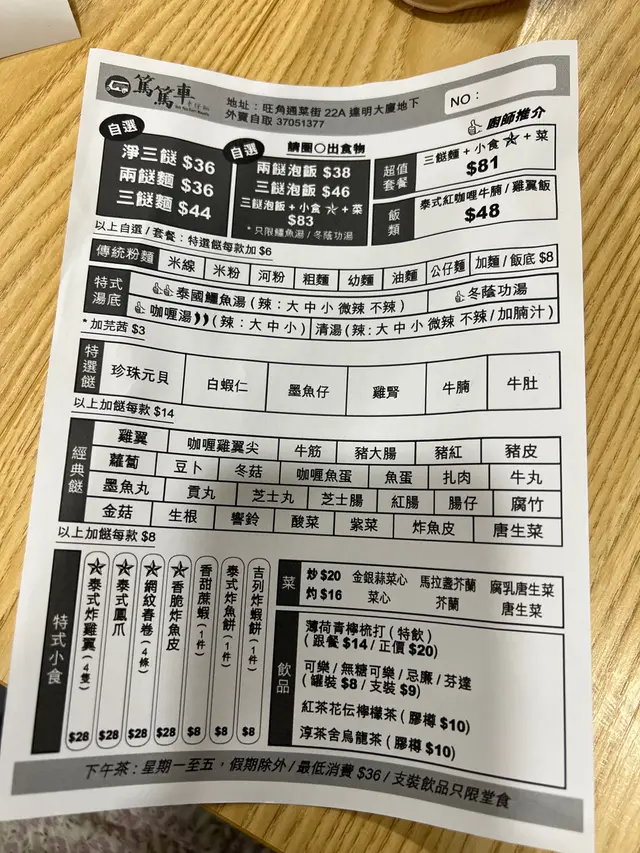 篤篤車
地址：旺角通菜街 22A 達明大廈地下
外賣自取 37051377
NO：
自選
淨三餸 $36
兩餸麵 $36
三餸麵 $44
自選
請圈〇出食物
兩餸泡飯 $38
三餸泡飯 $46
三餸泡飯 + 小食 ☆ + 菜
$83
* 只限鱷魚湯 / 冬蔭功湯
廚師推介
超值套餐
三餸麵 + 小食 ☆ + 菜
$81
飯類
泰式紅咖喱牛腩 / 雞翼飯
$48
以上自選 / 套餐：特選餸每款加 $6
傳統粉麵 米線 米粉 河粉 粗麵 幼麵 油麵 公仔麵 加麵 / 飯底 $8
特式湯底
泰國鱷魚湯 (辣：大 中 小 微辣 不辣)
冬蔭功湯
咖喱湯 (辣：大 中 小)
清湯 (辣：大 中 小 微辣 不辣 / 加腩汁)
* 加芫茜 $3
特選餸
珍珠元貝 白蝦仁 墨魚仔 雞腎 牛腩 牛肚
以上加餸每款 $14
經典餸
雞翼 咖喱雞翼尖 牛筋 豬大腸 豬紅 豬皮
蘿蔔 豆卜 冬菇 咖喱魚蛋 魚蛋 扎肉 牛丸
墨魚丸 貢丸 芝士丸 芝士腸 紅腸 腸仔 腐竹
金菇 生根 響鈴 酸菜 紫菜 炸魚皮 唐生菜
以上加餸每款 $8
特式小食
☆泰式炸雞翼 (4隻) $28
☆泰式鳳爪 $28
☆網紋春卷 (4條) $28
☆香脆炸魚皮 $28
香甜蔗蝦 (1件) $8
泰式炸魚餅 (1件) $8
吉列炸蝦餅 (1件) $8
菜
炒 $20 金銀蒜菜心 馬拉盞芥蘭 腐乳唐生菜
灼 $16 菜心 芥蘭 唐生菜
飲品
薄荷青檸梳打 (特飲)
(跟餐 $14 / 正價 $20)
可樂 / 無糖可樂 / 忌廉 / 芬達
(罐裝 $8 / 支裝 $9)
紅茶花伝檸檬茶 (膠樽 $10)
淳茶舍烏龍茶 (膠樽 $10)
下午茶：星期一至五，假期除外 / 最低消費 $36 / 支裝飲品只限堂食